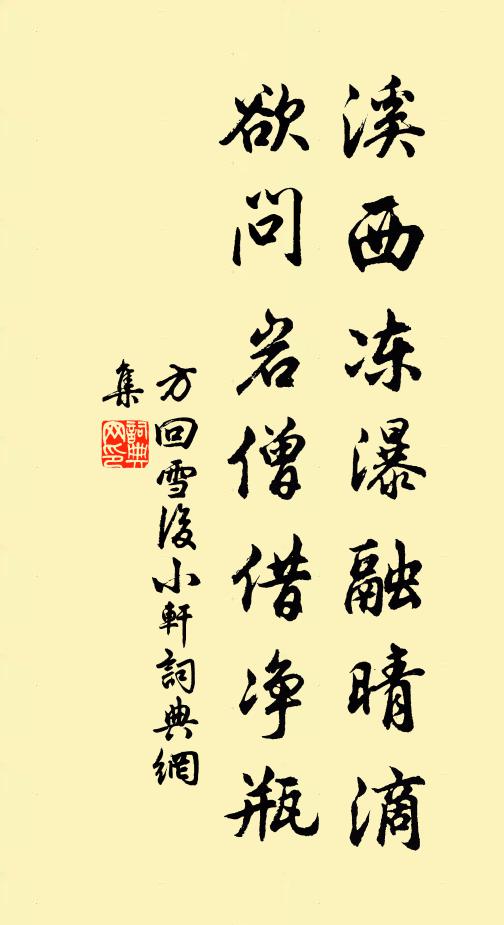 溪西冻瀑融晴滴
欲问岩僧借净瓶
方回雪后小軒詞典網
集
詞典
网印